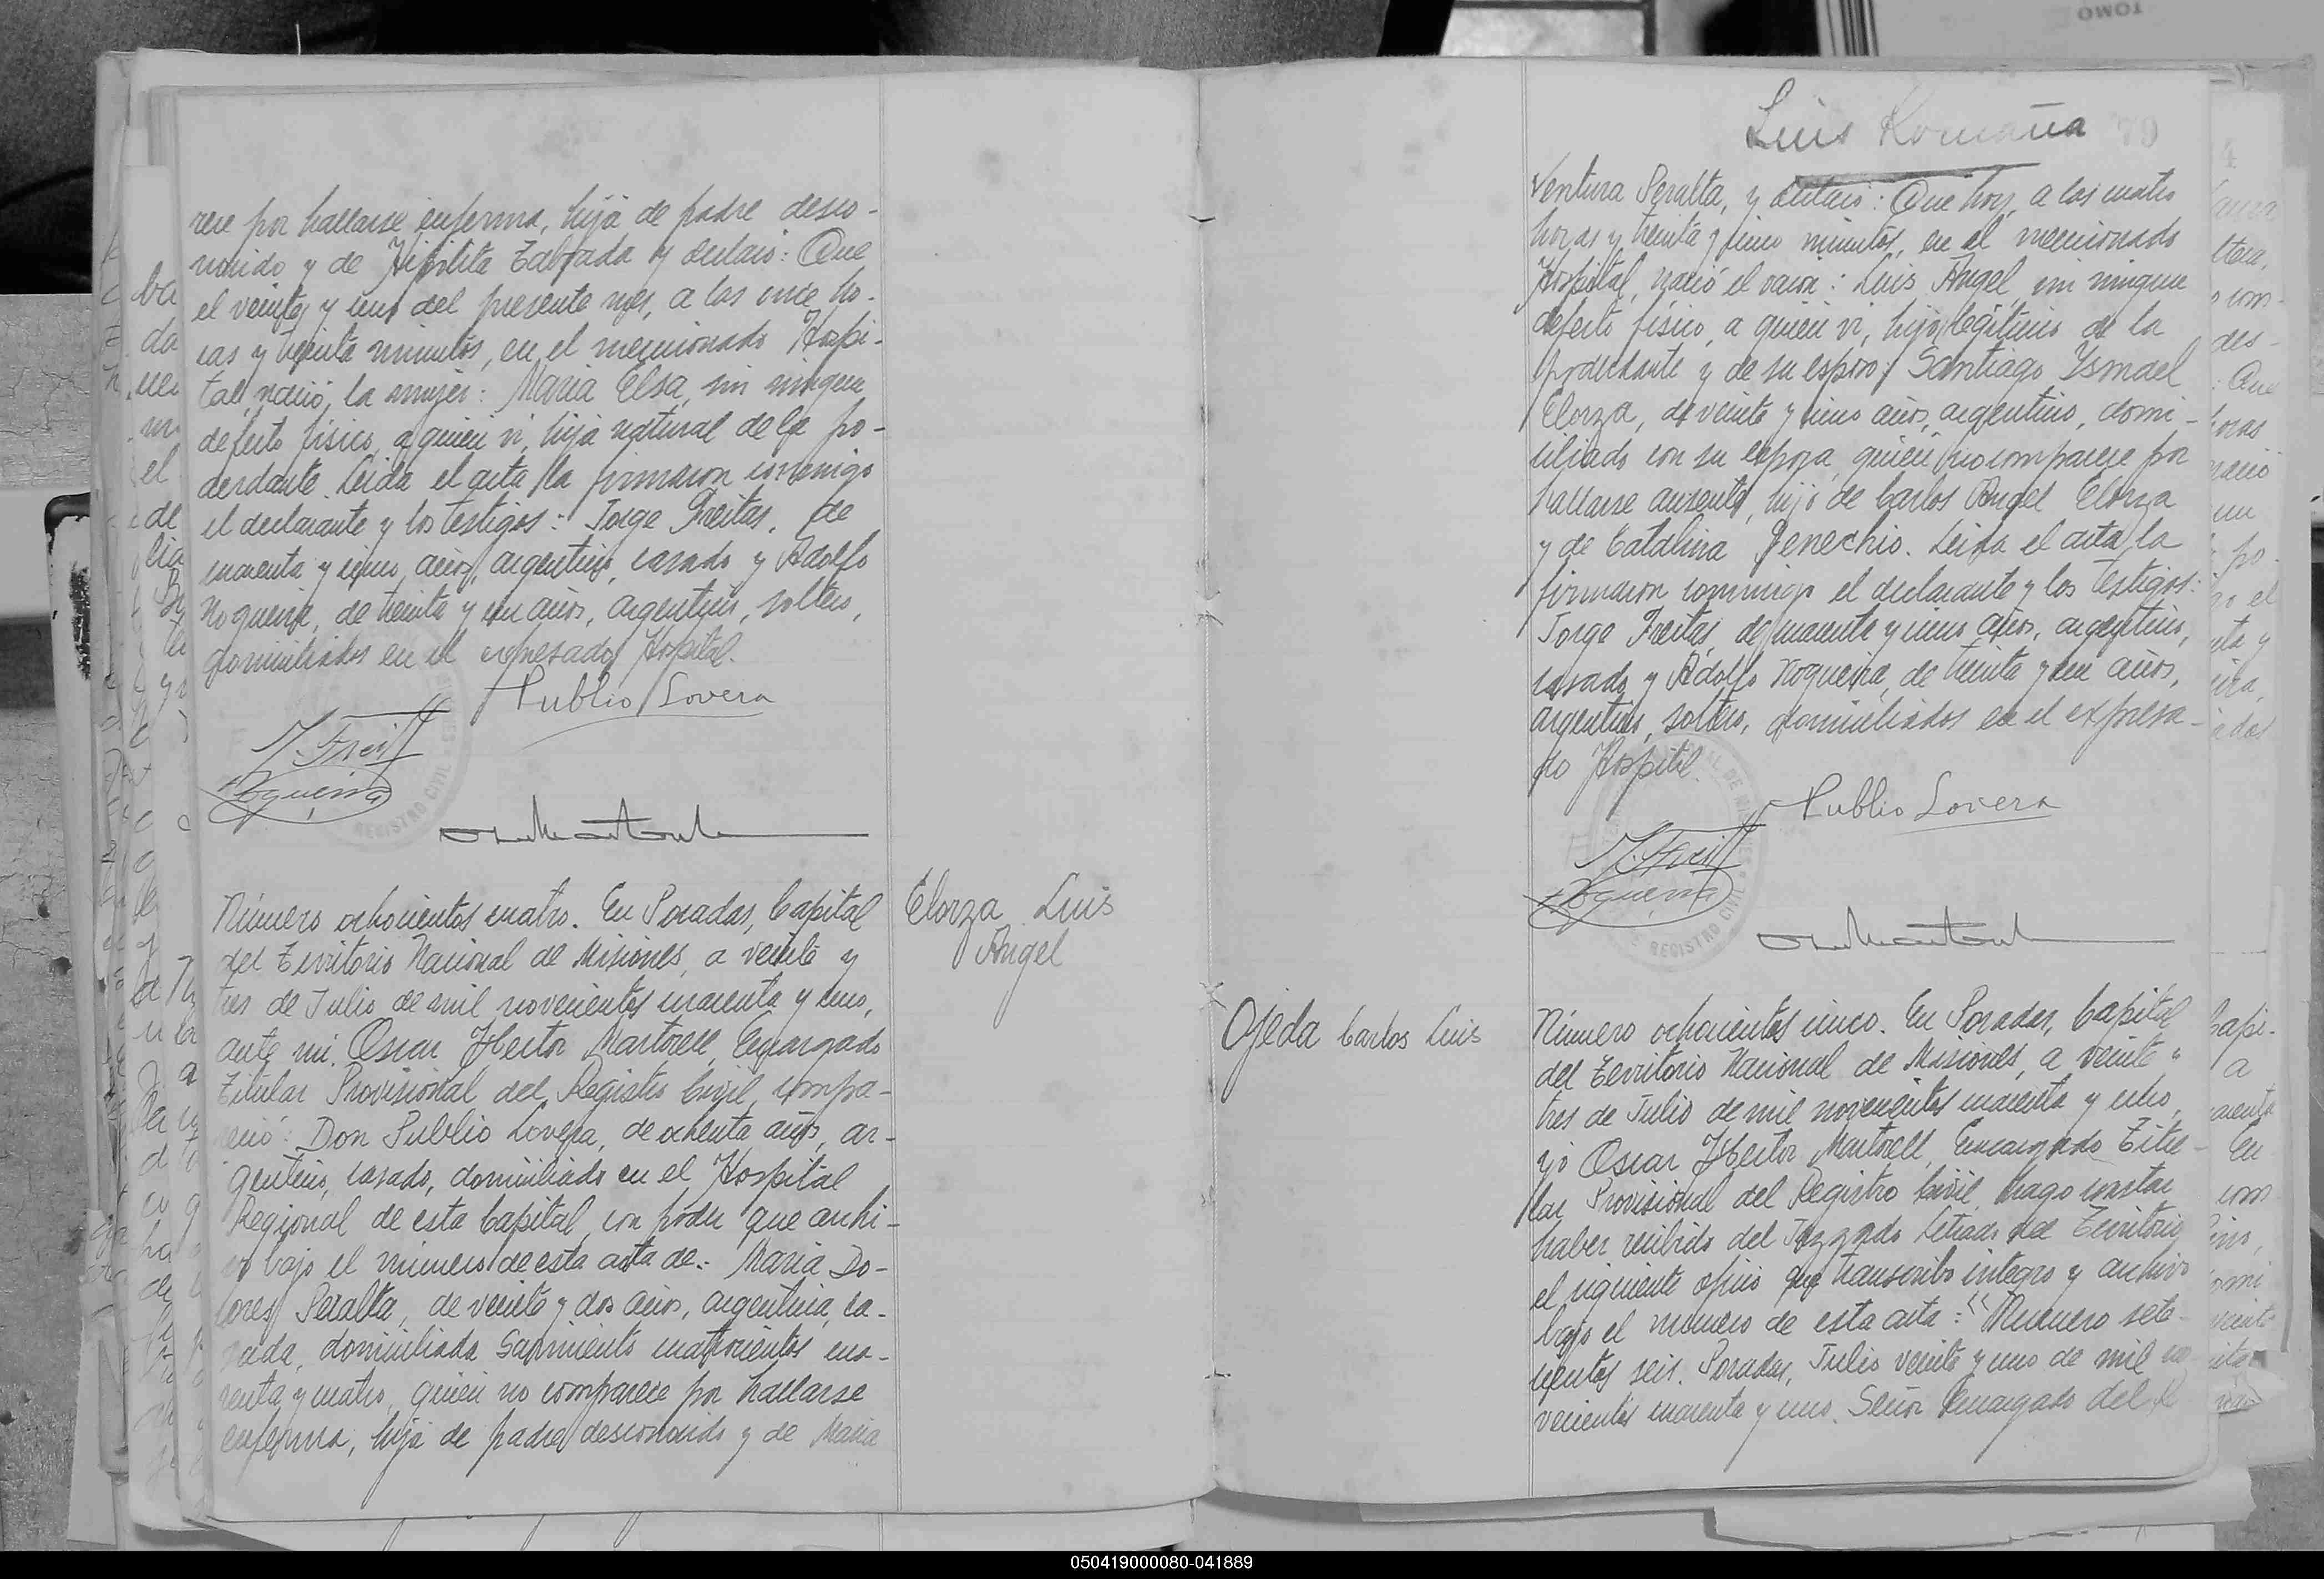 rece por hallarse enferma, hija de padre desco-
nocido y de Hipólita Taborada y declaró: Que
el veinte y uno del presente mes, a las once ho-
ras y treinta minutos, en el mencionado Hospi-
tal, nació, la mujer: María Elsa, sin ningun
defecto físico, a quien vi, hija natural de la po-
derdante. Leida el acta la firmaron conmigo
el declarante y los testigos: Jorge Freitas, de
cuarenta y cinco años, argentino, casado y Adolfo
Nogueira, de treinta y un años, argentino, soltero,
domiciliados en el expresado Hospital.
Publio Lovera
J. Freit
Nogueira
REGISTRO CIVIL
Número ochocientos cuatro. En Posadas, Capital
del Territorio Nacional de Misiones, a veinte y
tres de Julio de mil novecientos cuarenta y uno,
ante mi. Oscar Hector Martorell, Encargado
Titular Provisional del Registro Civil, compa-
reció: Don Publio Lovera, de ochenta años, ar-
gentino, casado, domiciliado en el Hospital
Regional de esta Capital, con poder que archi-
vo bajo el número de esta acta de: María Do-
lores Peralta, de veinte y dos años, argentina, ca-
sada, domiciliada Sarmiento cuatrocientos cua-
renta y cuatro, quien no comparece por hallarse
enferma, hija de padre desconocido y de María
Elorza Luis
Angel
Luis Romaña
79
Ventura Peralta, y declaró: Que hoy, a las cuatro
horas y treinta y cinco minutos, en el mencionado
Hospital, nació el varon: Luis Angel, sin ningun
defecto físico, a quien vi, hijo legítimo de la
poderdante y de su esposo: Santiago Ysmael
Elorza, de veinte y cinco años, argentino, domi-
ciliado con su esposa, quien no comparece por
hallarse ausente, hijo de Carlos Angel Elorza
y de Catalina Genechio. Leida el acta, la
firmaron conmigo el declarante y los testigos:
Jorge Freitas, de cuarenta y cinco años, argentino,
casado y Adolfo Nogueira, de treinta y un años,
argentino, soltero, domiciliados en el expresa-
do Hospital.
Publio Lovera
J. Freit
Nogueira
REGISTRO CIVIL
Ojeda Carlos Luis
Número ochocientos cinco. En Posadas, Capital
del Territorio Nacional de Misiones, a veinte y
tres de Julio de mil novecientos cuarenta y uno,
yo Oscar Hector Martorell, Encargado Titu-
lar Provisional del Registro Civil, hago constar
haber recibido del Juzgado Letrado del Territorio
el siguiente oficio que transcribo integro y archivo
bajo el número de esta acta: "Número sete-
cientos seis. Posadas, Julio veinte y uno de mil no-
vecientos cuarenta y uno. Señor Encargado del
050419000080-041889